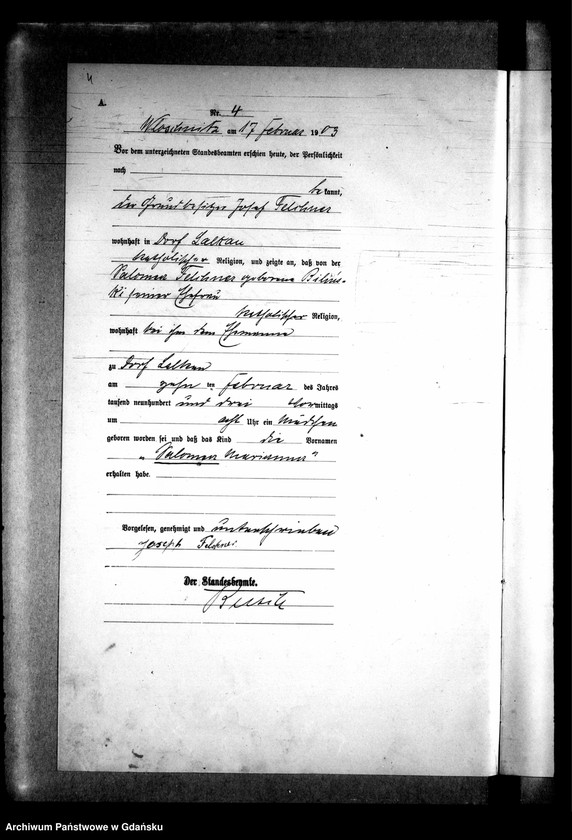 4
A.
Nr. 4
am 17 Februar 1903
Vor dem unterzeichneten Standesbeamten erschien heute, der Persönlichkeit
nach
bekannt,
der Grundbesitzer Josef Felchner
wohnhaft in Dorf Lalkau
katholischer Religion, und zeigte an, daß von der
Salomea Felchner geborene Bilins-
ki seiner Ehefrau
katholischer Religion,
wohnhaft bei ihm dem Ehemanne
zu Dorf Lalkau
am zehn ten Februar des Jahres
tausend neunhundert und drei Vormittags
um acht Uhr ein Mädchen
geboren worden sei und daß das Kind die Vornamen
„Salomea Marianna“
erhalten habe.
Vorgelesen, genehmigt und unterschrieben
Joseph Felchner
Der Standesbeamte.
Archiwum Państwowe w Gdańsku